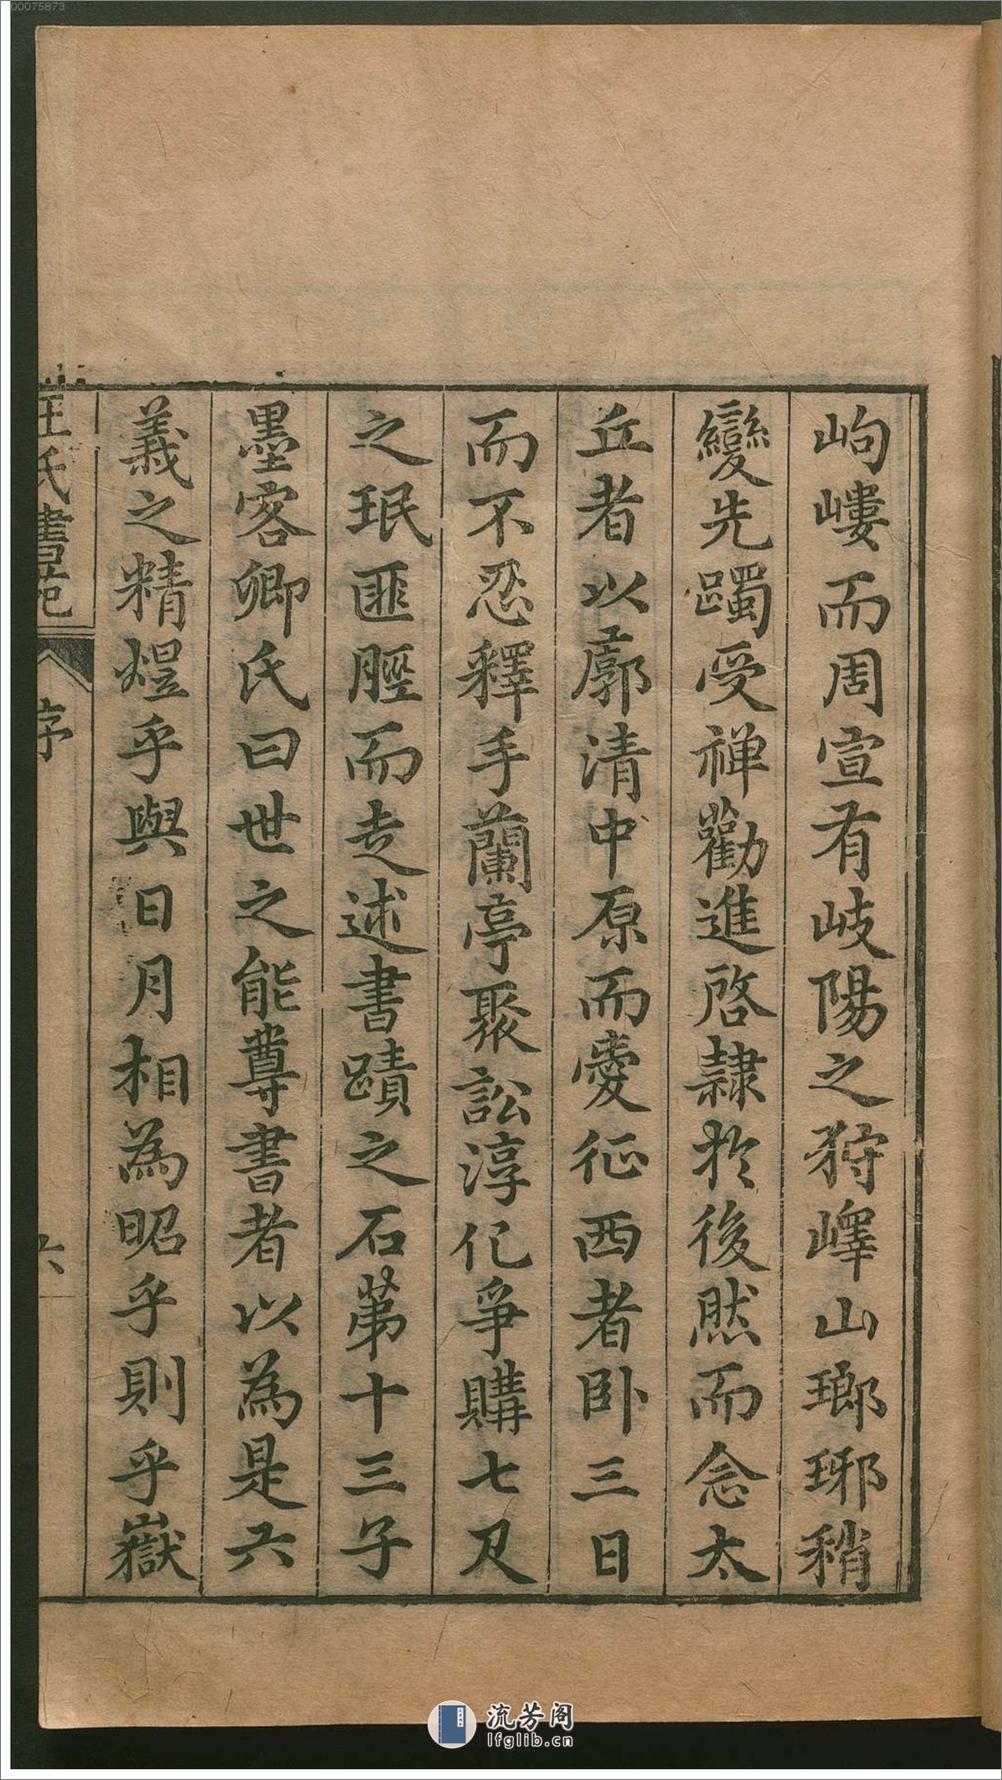 00075873
岣嶁而周宣有岐陽之狩嶧山瑯琊稍
變先躅受禪勸進啓隷於後然而念太
丘者以廓清中原而愛征西者卧三日
而不忍釋手蘭亭聚訟淳化爭購七及
之珉匪脛而走述書蹟之石第十三子
墨客卿氏曰世之能尊書者以為是六
義之精煜乎與日月相為昭乎則乎嶽
王氏書苑
序
六
流芳阁
lfglib.cn